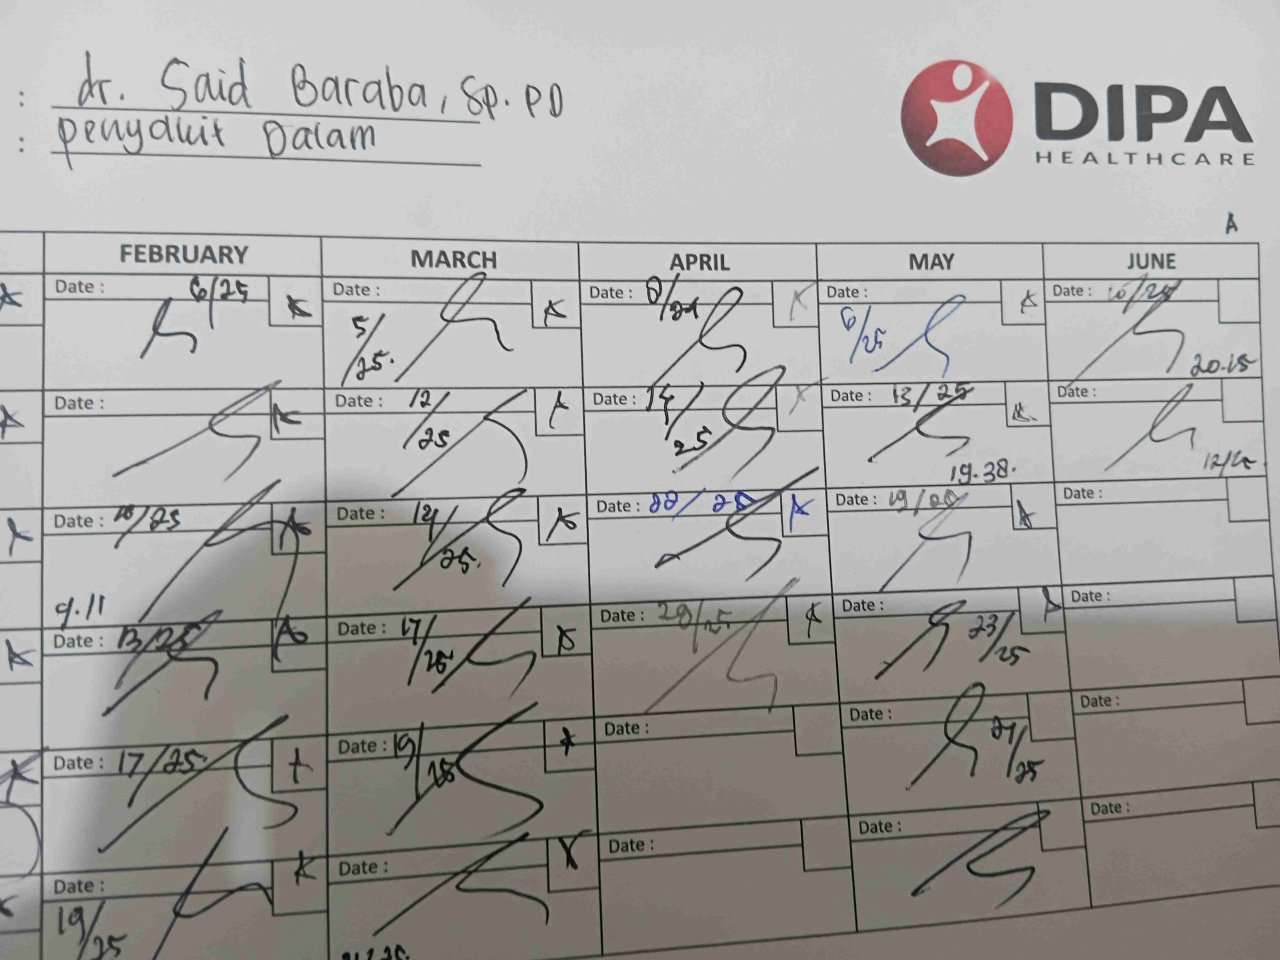 : dr. Said Baraba, Sp. PD
: Penyakit Dalam
DIPA
HEALTHCARE
A
FEBRUARY MARCH APRIL MAY JUNE
Date : 6/25 Date : 5/25. Date : 8/ Date : 6/25 Date : 10/25 20.15
Date : Date : 12/25 Date : 14/25 Date : 13/25 19.38. Date :
Date : /25 Date : 14/25. Date : 22/25 Date : 19/ Date :
9.11
13/25 Date : 17/25 Date : 28/25 Date : 23/25 Date :
Date : 17/25 Date : 19/25 Date : Date : 27/25 Date :
Date : 19/25 Date : Date : Date : Date :